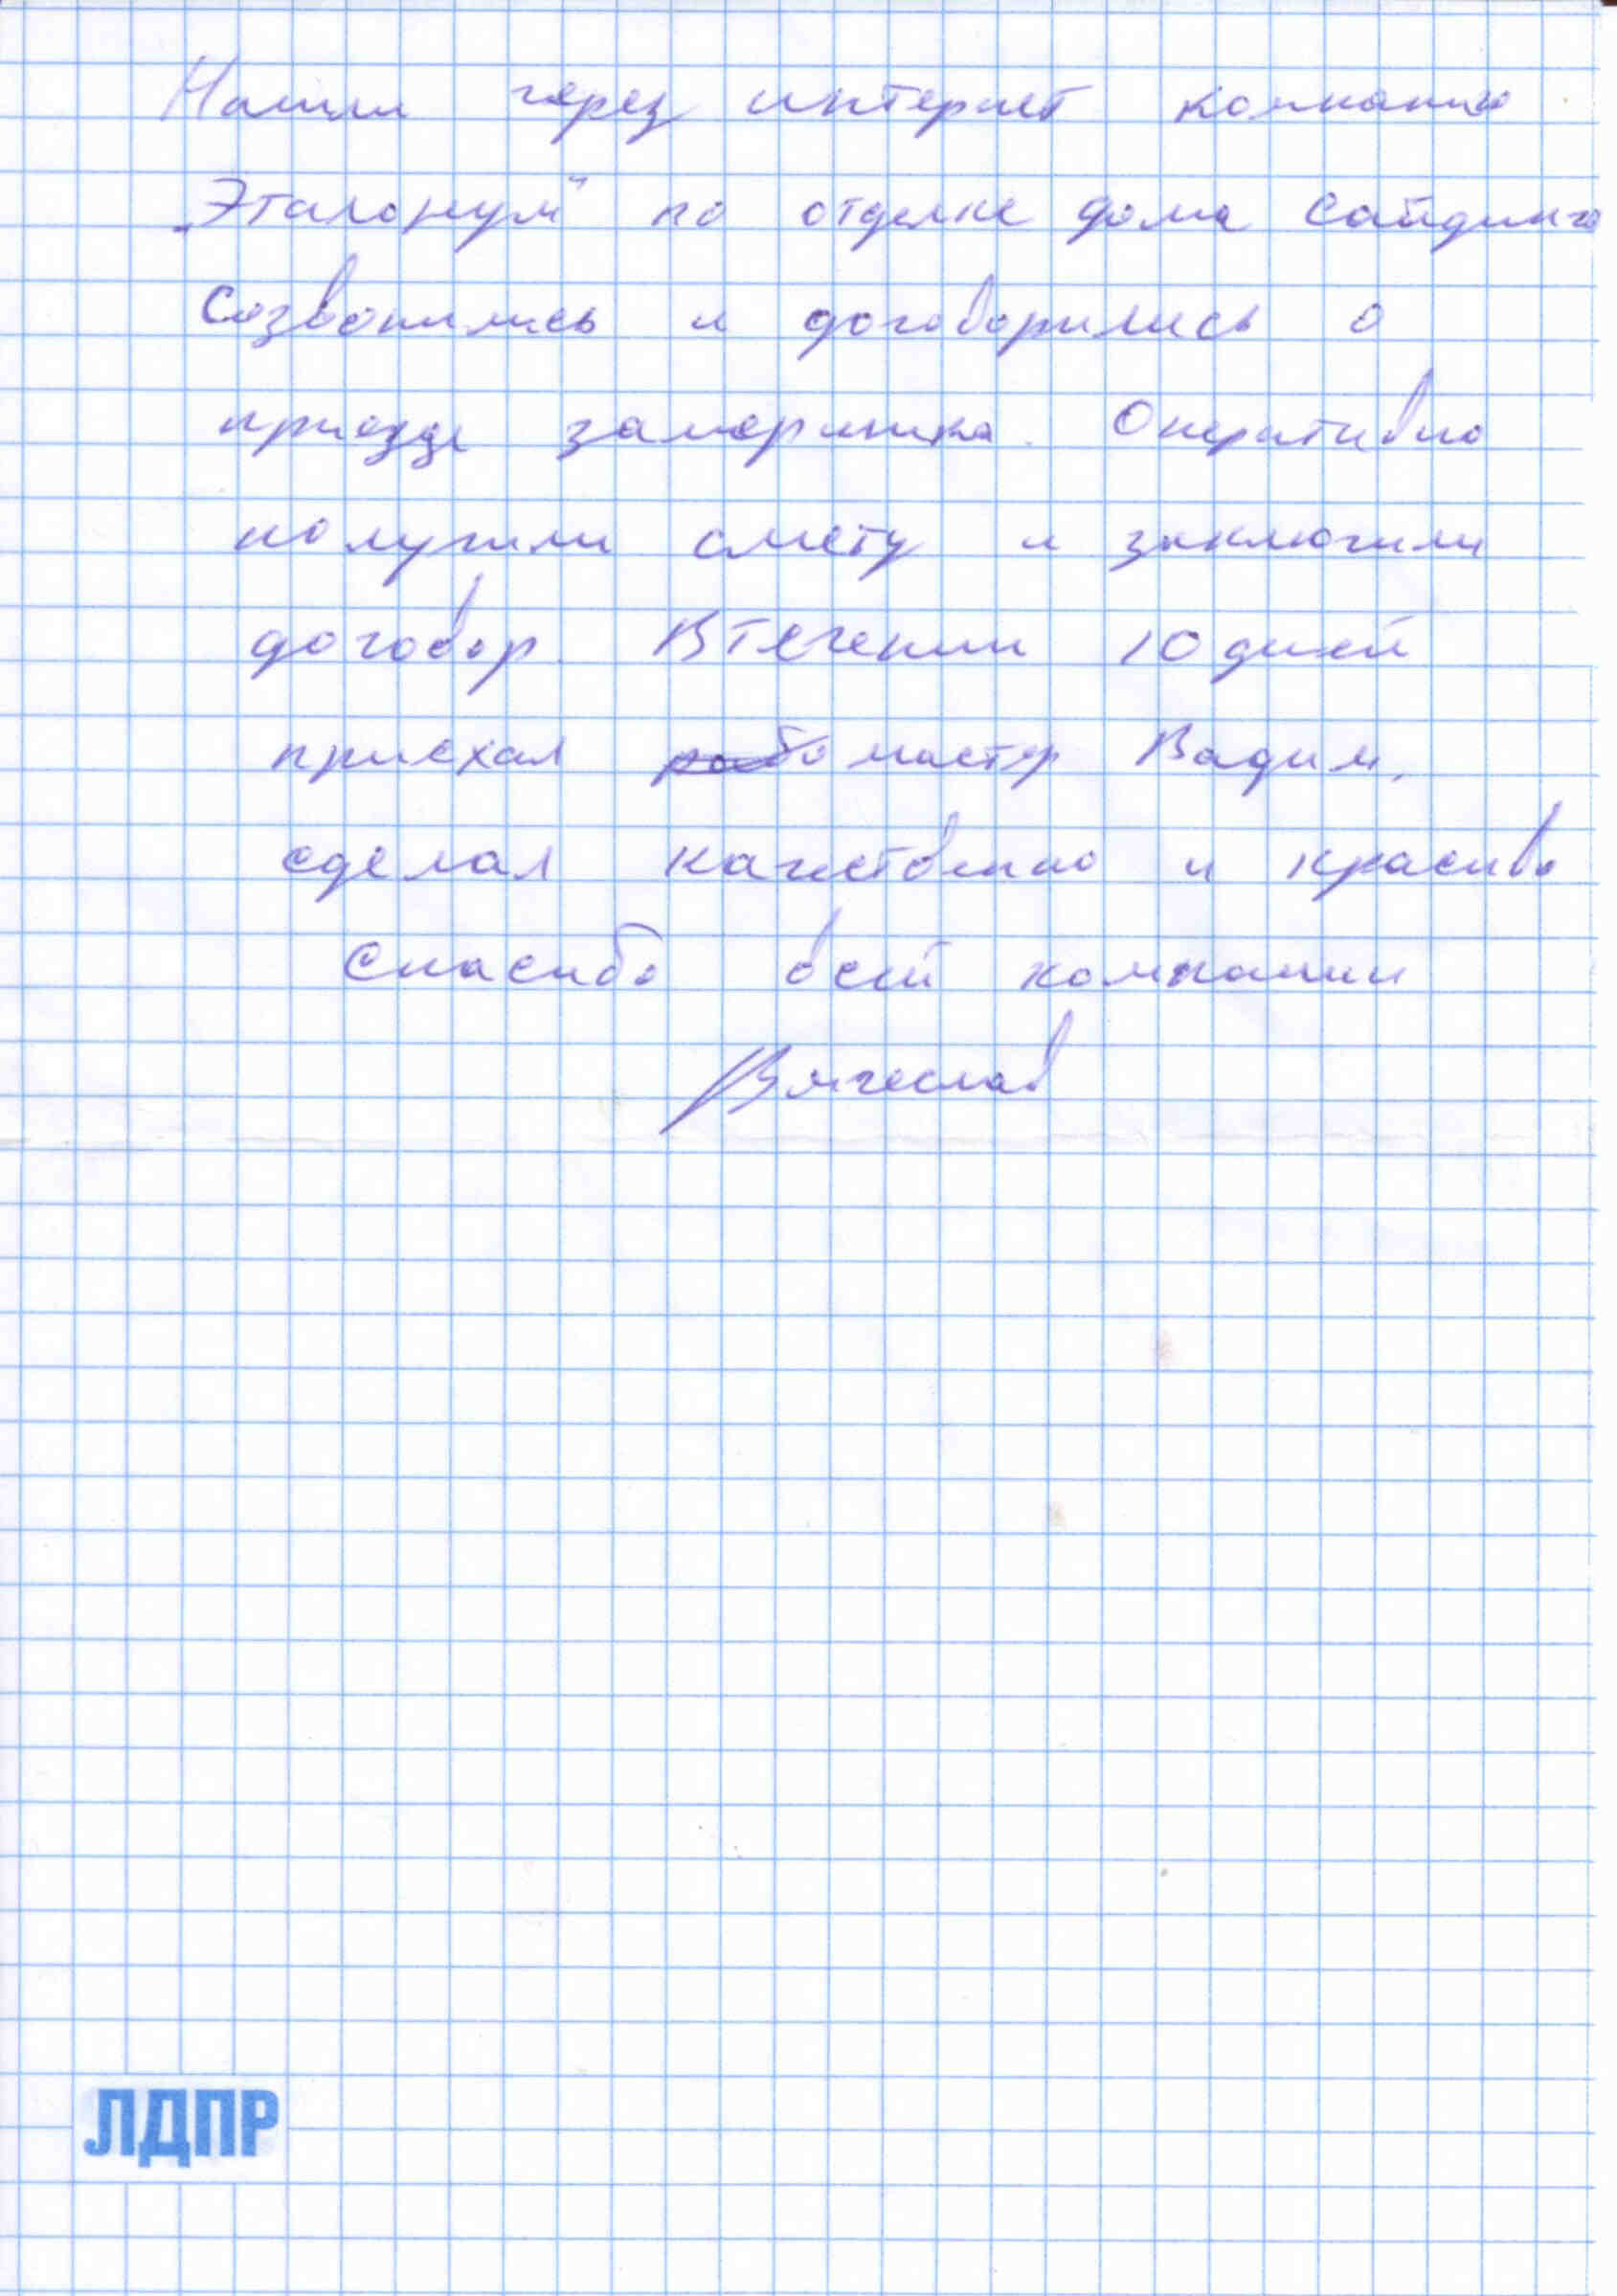 Нашли через интернет компанию
„Эталонум" по отделке дома сайдинго
Созвонились и договорились о
приезде замерщика. Оперативно
получили смету и заключили
договор. Втечении 10 дней
приехал мастер Вадим,
сделал качественно и красиво
Спасибо всей компании
Вячеслав
ЛДПР